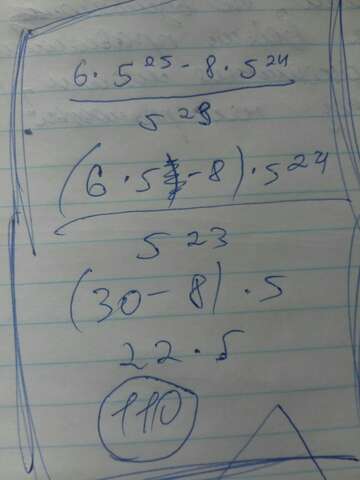 6 · 5²⁵ - 8 · 5²⁴
5²³
(6 · 5 - 8) · 5²⁴
5²³
(30 - 8) · 5
22 · 5
110